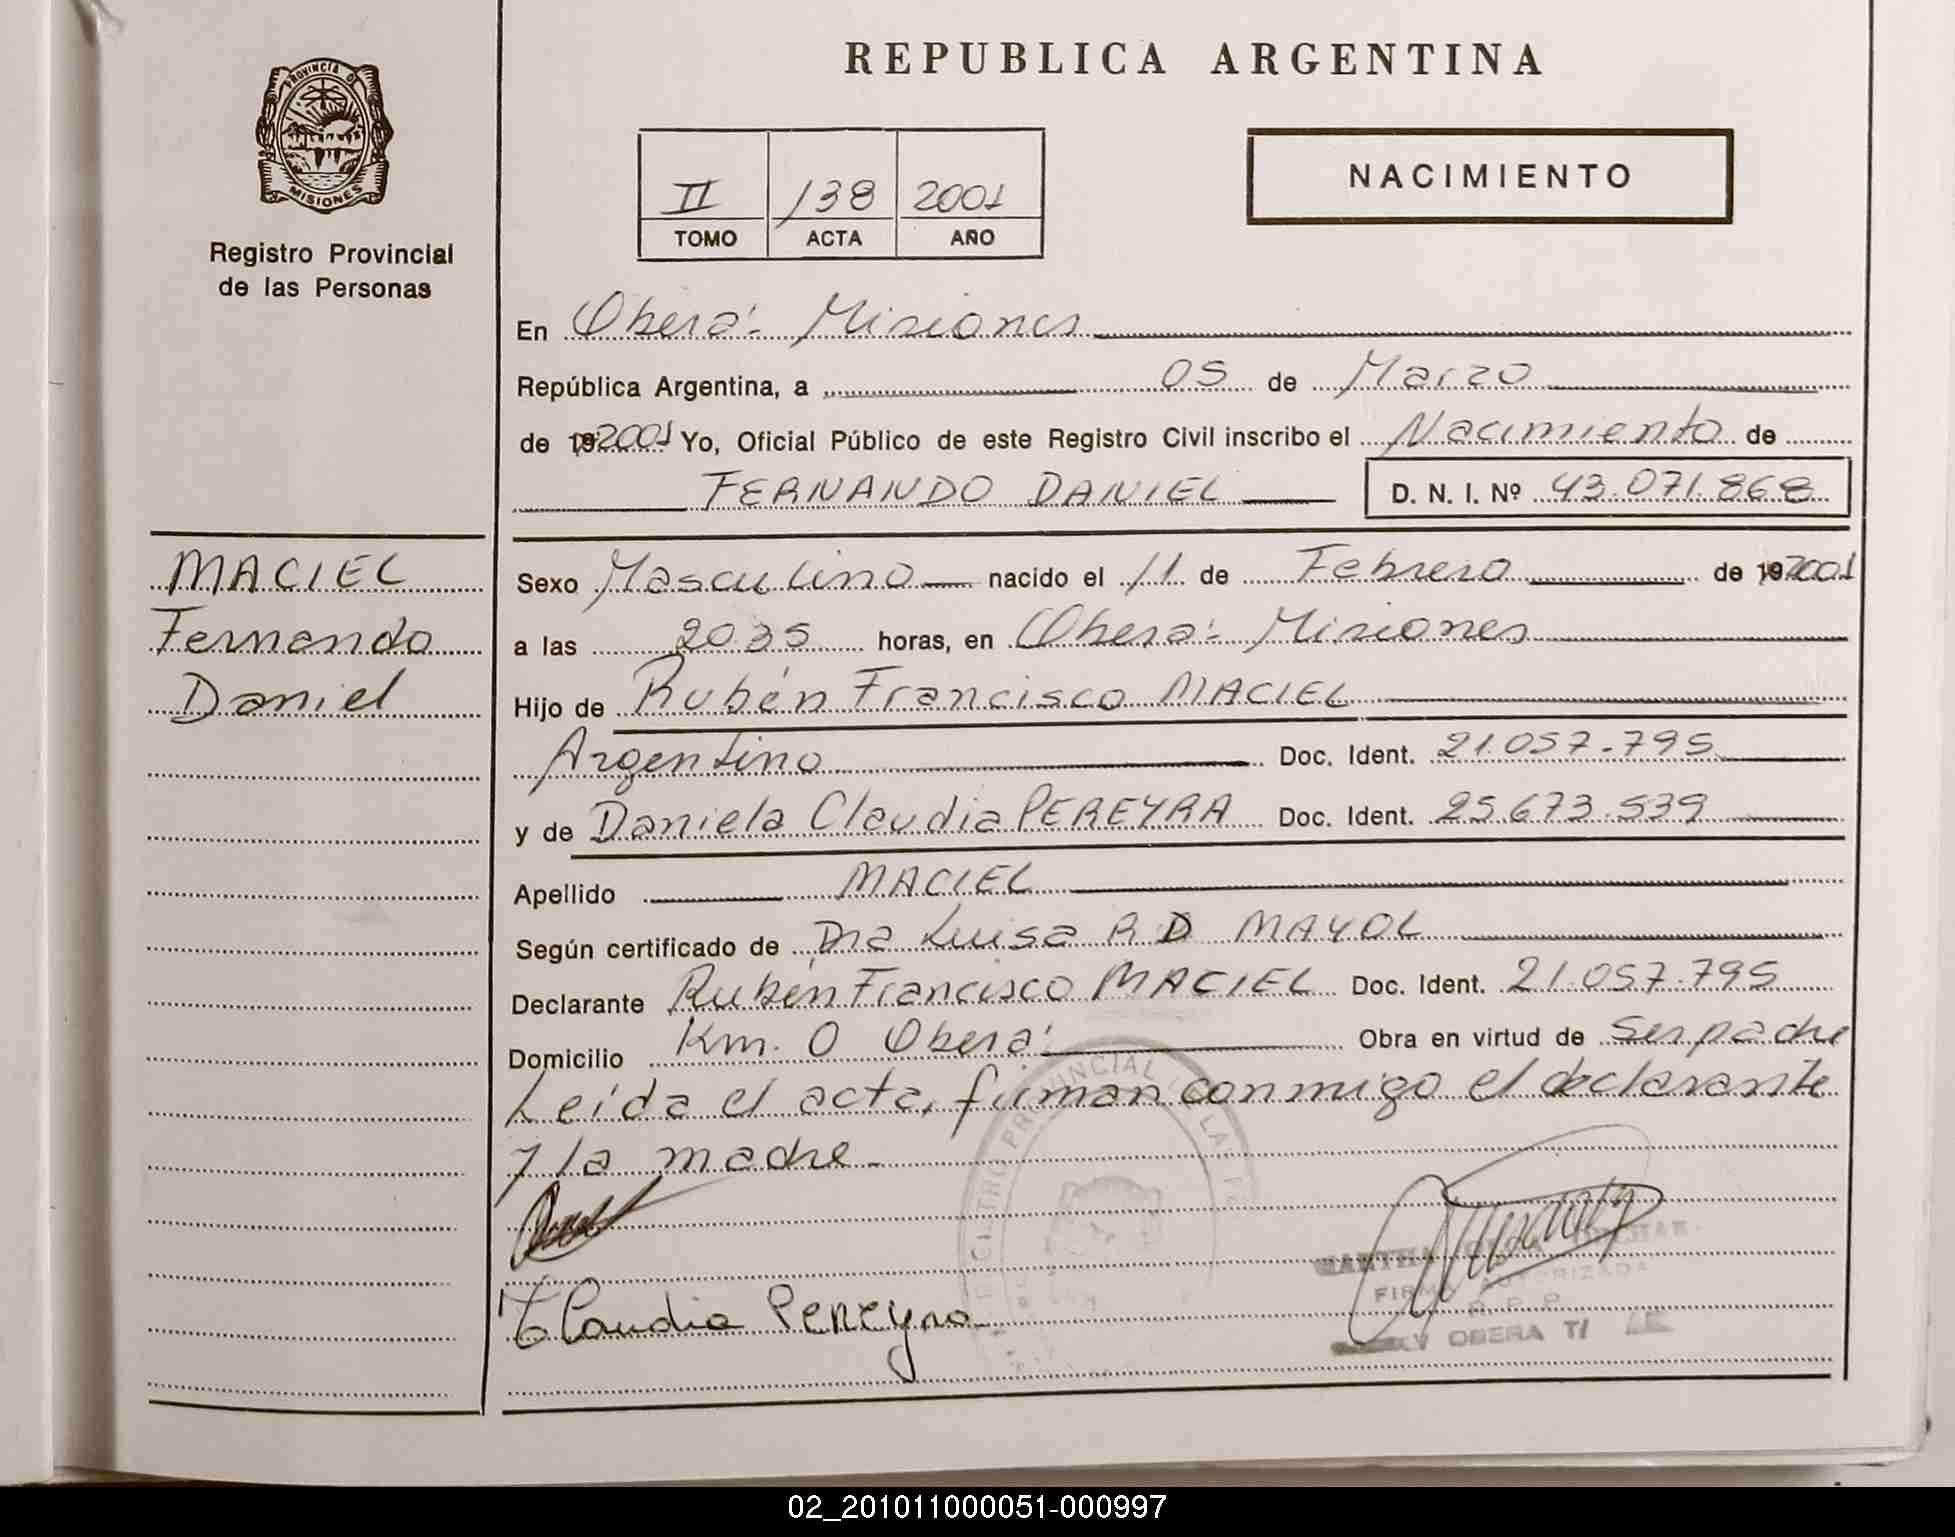 PROVINCIA DE
MISIONES
Registro Provincial
de las Personas
REPUBLICA ARGENTINA
II 138 2001
TOMO ACTA AÑO
NACIMIENTO
En Oberá - Misiones
República Argentina, a 05 de Marzo
de 192001 Yo, Oficial Público de este Registro Civil inscribo el Nacimiento de
FERNANDO DANIEL D. N. I. Nº 43.071.868
MACIEL
Fernando
Daniel
Sexo Masculino nacido el 11 de Febrero de 192001
a las 20.35 horas, en Oberá - Misiones
Hijo de Rubén Francisco MACIEL
Argentino Doc. Ident. 21.057.795
y de Daniela Claudia PEREYRA Doc. Ident. 25.673.539
Apellido MACIEL
Según certificado de Dra Luisa R D MAYOL
Declarante Rubén Francisco MACIEL Doc. Ident. 21.057.795
Domicilio Km. 0 Oberá Obra en virtud de Ser padre
Leída el acta, firman conmigo el declarante
y la madre -
REGISTRO PROVINCIAL DE LAS
Claudia Pereyra
MARTHA OLGA
FIRMA AUTORIZADA
R. P. P.
OBERA
02_201011000051-000997